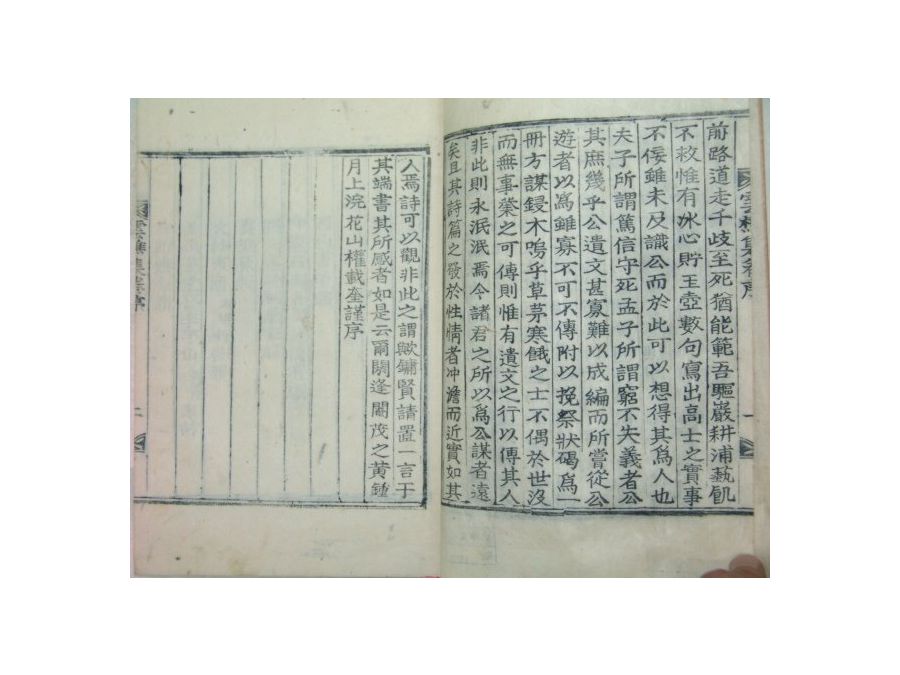 前路道走千歧至死猶能範吾驅巖耕浦藝飢
不救惟有氷心貯玉壺數句寫出高士之實事
不佞雖未及識公而於此可以想得其爲人也
夫子所謂篤信守死孟子所謂窮不失義者公
其庶幾乎公遺文甚寡難以成編而所嘗從公
遊者以爲雖寡不可不傳附以挽祭狀碣爲一
冊方謀鋟木嗚乎草茅寒餓之士不偶於世沒
而無事業之可傳則惟有遺文之行以傳其人
非此則永泯泯焉今諸君之所以爲公謀者遠
矣且其詩篇之發於性情者冲澹而近實如其
人焉詩可以觀非此之謂歟鏞賢請置一言于
其端書其所感者如是云爾閼逢閹茂之黃鍾
月上浣花山權載奎謹序
集序
一
集序
二